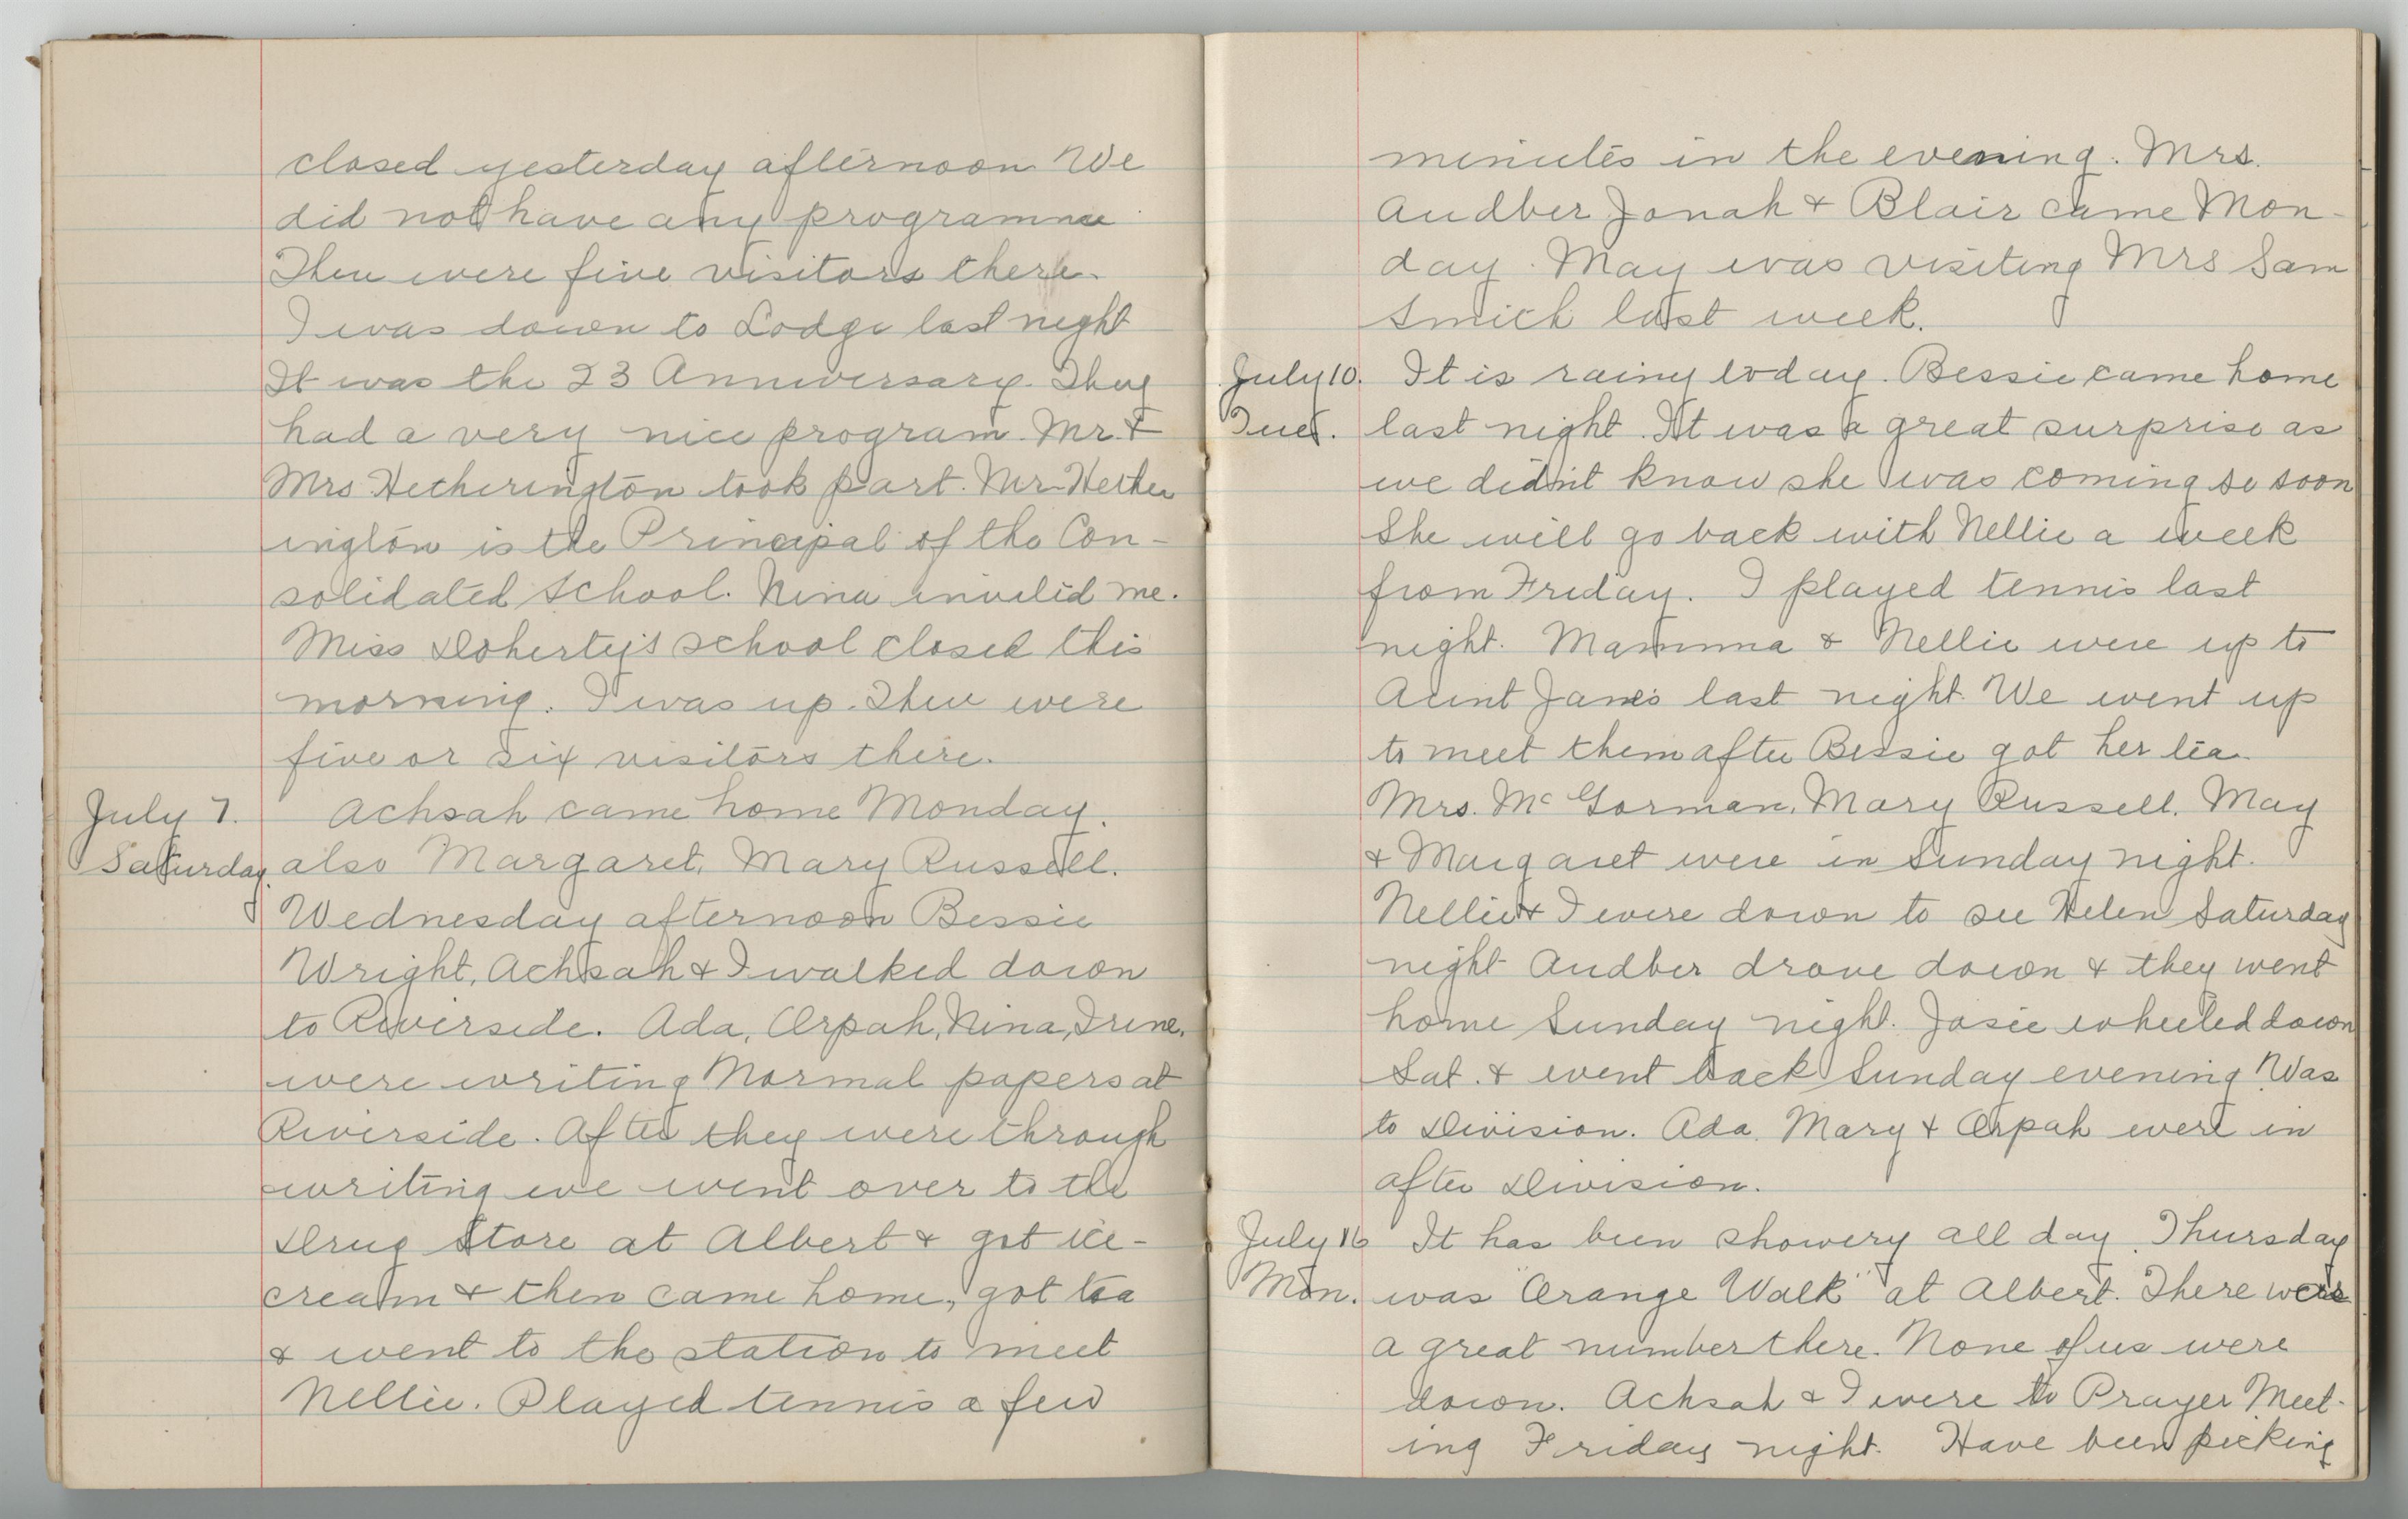 closed yesterday afternoon We
did not have any programme
There were five visitors there.
I was down to Lodge last night
It was the 23 Anniversary. They
had a very nice program. Mr. &
Mrs Hetherington took part. Mr. Hether
ington is the Principal of the Con-
solidated School. Nina invited me.
Miss Doherty's school closed this
morning. I was up. There were
five or six visitors there.
July 7. Achsah came home Monday.
Saturday. also Margaret, Mary Russell.
Wednesday afternoon Bessie
Wright, Achsah & I walked down
to Riverside. Ada, Orpah, Nina, Irene,
were writing Normal papers at
Riverside. After they were through
writing we went over to the
Drug Store at Albert & got ice-
cream & then came home, got tea
& went to the station to meet
Nellie. Played tennis a few
minutes in the evening. Mrs.
Audber Jonah & Blair came Mon-
day. May was visiting Mrs Sam
Smith last week.
July 10. It is rainy today. Bessie came home
Tues. last night. It was a great surprise as
we didn't know she was coming so soon
She will go back with Nellie a week
from Friday. I played tennis last
night. Mamma & Nellie were up to
Aunt Jane's last night. We went up
to meet them after Bessie got her tea.
Mrs. McGorman, Mary Russell, May
& Margaret were in Sunday night.
Nellie & I were down to see Helen Saturday
night Audber drove down & they went
home Sunday night. Josie wheeled down
Sat. & went back Sunday evening Was
to Division. Ada, Mary & Orpah were in
after Division.
July 16 It has been showery all day. Thursday
Mon. was "Orange Walk" at Albert. There were
a great number there. None of us were
down. Achsah & I were to Prayer Meet-
ing Friday night. Have been picking